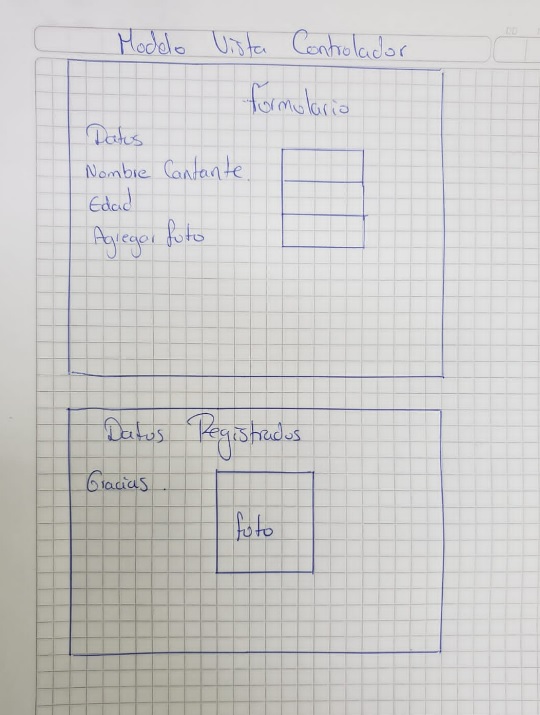 Modelo Vista Controlador
formulario
Datos
Nombre Cantante.
Edad
Agregar foto
Datos Registrados
Gracias.
foto